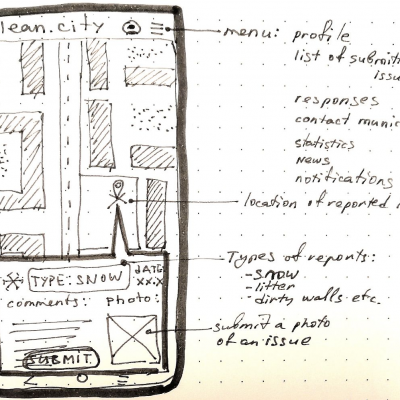 lean.city
menu: profile
list of submitt
issu
responses
contact munic
statistics
news
notifications
location of reported
Types of reports:
-snow
-litter
-dirty walls etc.
TYPE: SNOW
DATE:
XX.X
comments: photo:
submit a photo
of an issue
SUBMIT